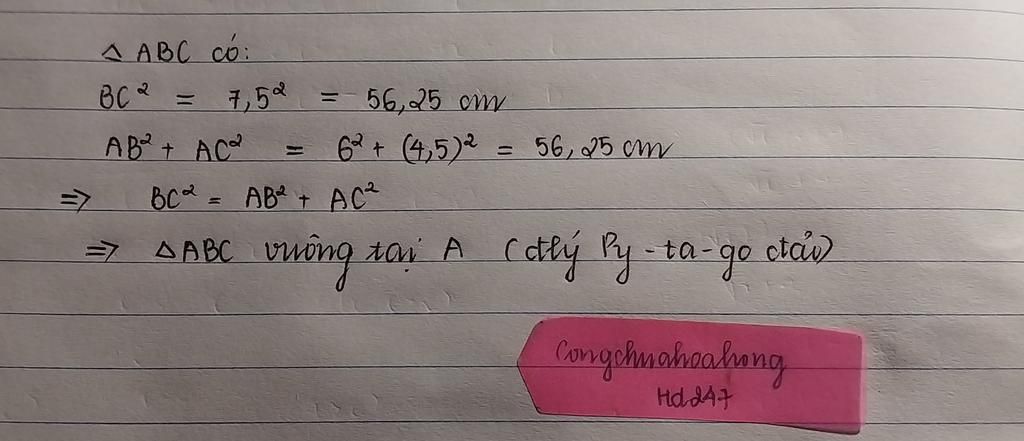 △ ABC có:
BC² = 7,5² = 56,25 cm
AB² + AC² = 6² + (4,5)² = 56,25 cm
=> BC² = AB² + AC²
=> △ABC vuông tại A (đlý Py-ta-go đảo)
Congchuahoahong
Hd247